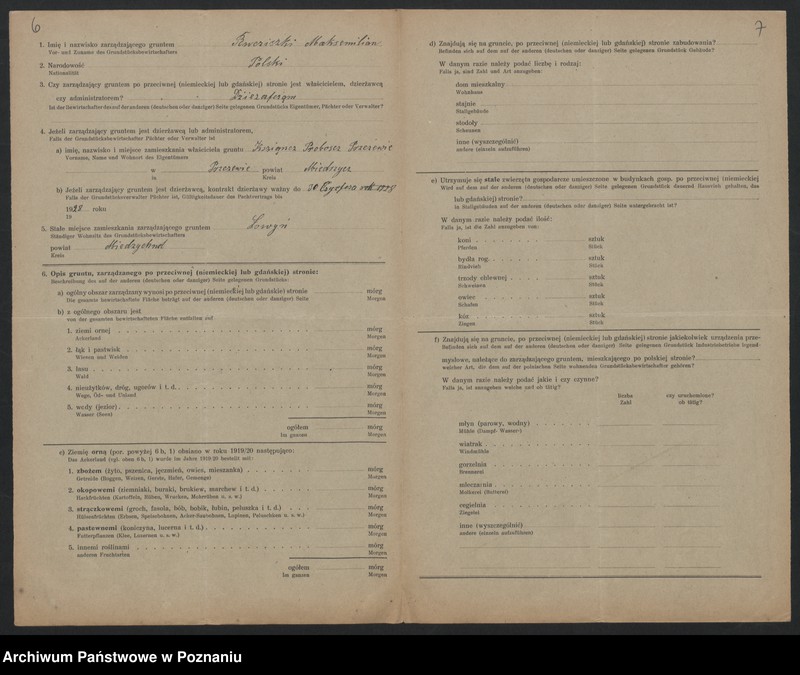 6
1. Imię i nazwisko zarządzającego gruntem Maksemilian
Vor- und Zuname des Grundstücksbewirtschafters
2. Narodowość Polski
Nationalität
3. Czy zarządzający gruntem po przeciwnej (niemieckiej lub gdańskiej) stronie jest właścicielem, dzierżawcą
czy administratorem?
Ist der Bewirtschafter des auf der anderen (deutschen oder danziger) Seite gelegenen Grundstücks Eigentümer, Pächter oder Verwalter?
4. Jeżeli zarządzający gruntem jest dzierżawcą lub administratorem,
Falls der Grundstücksbewirtschafter Pächter oder Verwalter ist
a) imię, nazwisko i miejsce zamieszkania właściciela gruntu
Vorname, Name und Wohnort des Eigentümers
w powiat
in Kreis
b) Jeżeli zarządzający gruntem jest dzierżawcą, kontrakt dzierżawy ważny do
Falls der Grundstücksverwalter Pächter ist, Gültigkeitsdauer des Pachtvertrags bis
1928 roku
19
5. Stałe miejsce zamieszkania zarządzającego gruntem Lowyń
Ständiger Wohnsitz des Grundstücksbewirtschafters
powiat Miedzychod
Kreis
6. Opis gruntu, zarządzanego po przeciwnej (niemieckiej lub gdańskiej) stronie:
Beschreibung des auf der anderen (deutschen oder danziger) Seite gelegenen Grundstücks:
a) ogólny obszar zarządzany wynosi po przeciwnej (niemieckiej lub gdańskie) stronie mórg
Die gesamte bewirtschaftete Fläche beträgt auf der anderen (deutschen oder danziger) Seite Morgen
b) z ogólnego obszaru jest
von der gesamten bewirtschafteten Fläche entfallen auf
1. ziemi ornej mórg
Ackerland Morgen
2. łąk i pastwisk mórg
Wiesen und Weiden Morgen
3. lasu mórg
Wald Morgen
4. nieużytków, dróg, ugorów i t. d. mórg
Wege, Öd- und Unland Morgen
5. wody (jezior) mórg
Wasser (Seen) Morgen
ogółem mórg
Im ganzen Morgen
c) Ziemię orną (por. powyżej 6 b, 1) obsiano w roku 1919/20 następująco:
Das Ackerland (vgl. oben 6 b, 1) wurde im Jahre 1919/20 bestellt mit:
1. zbożem (żyto, pszenica, jęczmień, owies, mieszanka) mórg
Getreide (Roggen, Weizen, Gerste, Hafer, Gemenge) Morgen
2. okopowemi (ziemniaki, buraki, brukiew, marchew i t. d.) mórg
Hackfrüchten (Kartoffeln, Rüben, Wruken, Mohrrüben u. s. w.) Morgen
3. strączkowemi (groch, fasola, bób, bobik, łubin, peluszka i t. d.) mórg
Hülsenfrüchten (Erbsen, Speisebohnen, Acker-Saubohnen, Lupinen, Peluschken u. s. w.) Morgen
4. pastewnemi (koniczyna, lucerna i t. d.) mórg
Futterpflanzen (Klee, Luzernen u. s. w.) Morgen
5. innemi roślinami mórg
anderen Fruchtarten Morgen
ogółem mórg
Im ganzen Morgen
7
d) Znajdują się na gruncie, po przeciwnej (niemieckiej lub gdańskiej) stronie zabudowania?
Befinden sich auf dem auf der anderen (deutschen oder danziger) Seite gelegenen Grundstück Gebäude?
W danym razie należy podać liczbę i rodzaj:
Falls ja, sind Zahl und Art anzugeben:
dom mieszkalny
Wohnhaus
stajnie
Stallgebäude
stodoły
Scheunen
inne (wyszczególnić)
andere (einzeln aufzuführen)
e) Utrzymuje się stale zwierzęta gospodarcze umieszczone w budynkach gosp. po przeciwnej (niemieckiej
Wird auf dem auf der anderen (deutschen oder danziger) Seite gelegenen Grundstück dauernd Hausvieh gehalten, das
lub gdańskiej) stronie?
in Stallgebäuden auf der anderen (deutschen oder danziger) Seite untergebracht ist?
W danym razie należy podać ilość:
Falls ja, ist die Zahl anzugeben von:
koni sztuk
Pferden Stück
bydła rog. sztuk
Rindvieh Stück
trzody chlewnej sztuk
Schweinen Stück
owiec sztuk
Schafen Stück
kóz sztuk
Ziegen Stück
f) Znajdują się na gruncie, po przeciwnej (niemieckiej lub gdańskiej) stronie jakiekolwiek urządzenia prze-
Befinden sich auf dem auf der anderen (deutschen oder danziger) Seite gelegenen Grundstück Industriebetriebe irgend-
mysłowe, należące do zarządzającego gruntem, mieszkającego po polskiej stronie?
welcher Art, die dem auf der polnischen Seite wohnenden Grundstücksbewirtschafter gehören?
W danym razie należy podać jakie i czy czynne?
Falls ja, ist anzugeben welche und ob tätig?
liczba czy uruchomione?
Zahl ob tätig?
młyn (parowy, wodny)
Mühle (Dampf- Wasser-)
wiatrak
Windmühle
gorzelnia
Brennerei
mleczarnia
Molkerei (Butterei)
cegielnia
Ziegelei
inne (wyszczególnić)
andere (einzeln aufzuführen)
Archiwum Państwowe w Poznaniu